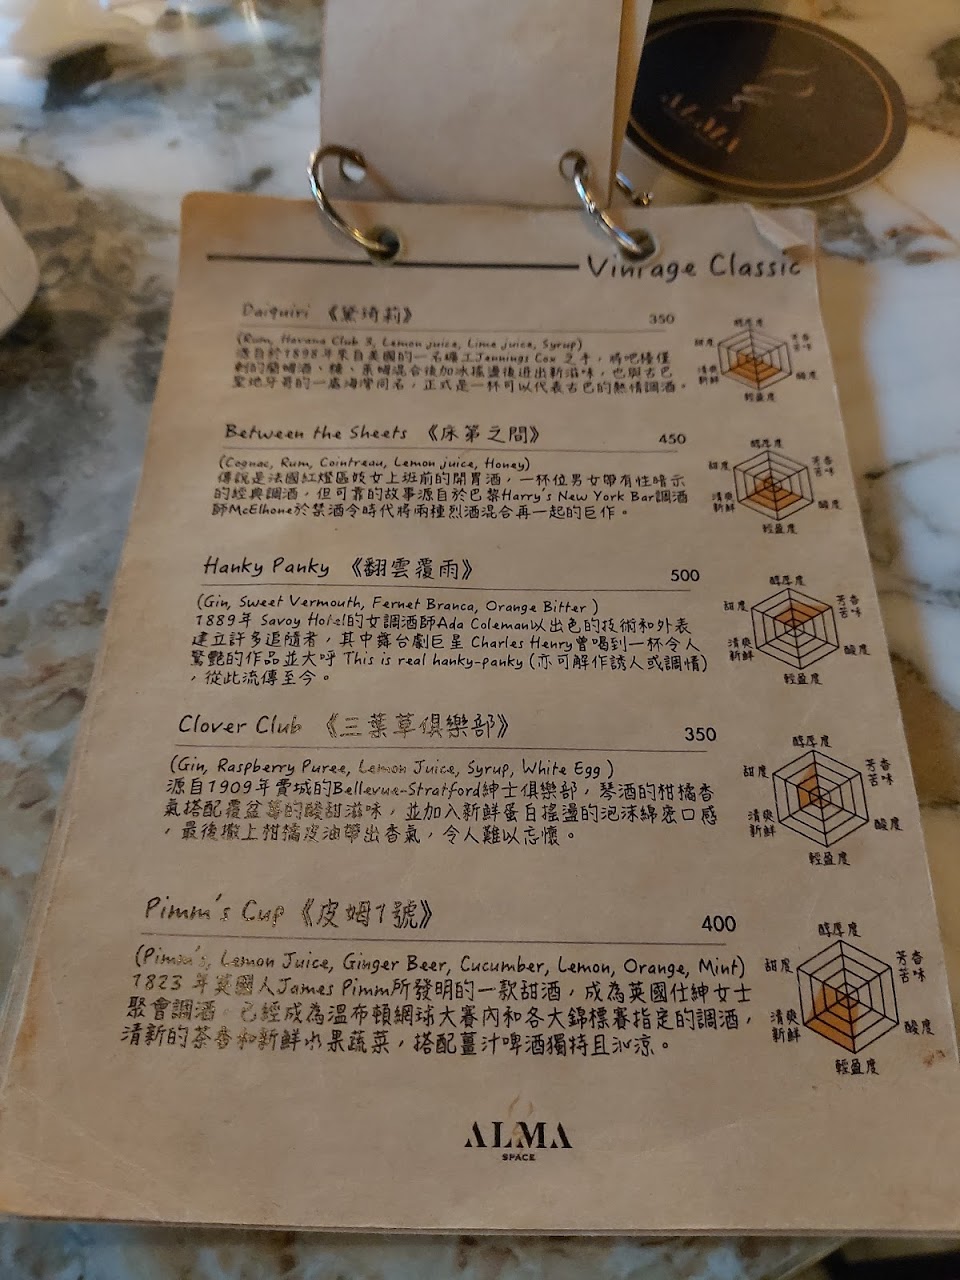 ALMA
Vintage Classic
Daiquiri 《黛琦莉》 350
(Rum, Havana Club 3, Lemon juice, Lime juice, Syrup)
源自於1898年來自美國的一名礦工Jennings Cox之手,將吧檯僅
剩的蘭姆酒、糖、萊姆混合後加冰搖盪後迸出新滋味,也與古巴
聖地牙哥的一處海灣同名,正式是一杯可以代表古巴的熱情調酒。
醇厚度
芳香
苦味
酸度
輕盈度
清爽
新鮮
甜度
Between the Sheets 《床第之間》 450
(Cognac, Rum, Cointreau, Lemon juice, Honey)
傳說是法國紅燈區妓女上班前的開胃酒,一杯位男女帶有性暗示
的經典調酒,但可靠的故事源自於巴黎Harry's New York Bar調酒
師McElhone於禁酒令時代將兩種烈酒混合再一起的巨作。
醇厚度
芳香
苦味
酸度
輕盈度
清爽
新鮮
甜度
Hanky Panky 《翻雲覆雨》 500
(Gin, Sweet Vermouth, Fernet Branca, Orange Bitter )
1889年 Savoy Hotel的女調酒師Ada Coleman以出色的技術和外表
建立許多追隨者,其中舞台劇巨星 Charles Henry曾喝到一杯令人
驚艷的作品並大呼 This is real hanky-panky (亦可解作誘人或調情)
,從此流傳至今。
醇厚度
芳香
苦味
酸度
輕盈度
清爽
新鮮
甜度
Clover Club 《三葉草俱樂部》 350
(Gin, Raspberry Puree, Lemon Juice, Syrup, White Egg )
源自1909年費城的Bellevue-Stratford紳士俱樂部,琴酒的柑橘香
氣搭配覆盆莓的酸甜滋味,並加入新鮮蛋白搖盪的泡沫綿密口感
,最後撒上柑橘皮油帶出香氣,令人難以忘懷。
醇厚度
芳香
苦味
酸度
輕盈度
清爽
新鮮
甜度
Pimm's Cup 《皮姆1號》 400
(Pimm's, Lemon Juice, Ginger Beer, Cucumber, Lemon, Orange, Mint)
1823 年英國人James Pimm所發明的一款甜酒,成為英國仕紳女士
聚會調酒。已經成為溫布頓網球大賽內和各大錦標賽指定的調酒,
清新的茶香和新鮮水果蔬菜,搭配薑汁啤酒獨特且沁涼。
醇厚度
芳香
苦味
酸度
輕盈度
清爽
新鮮
甜度
ALMA
SPACE